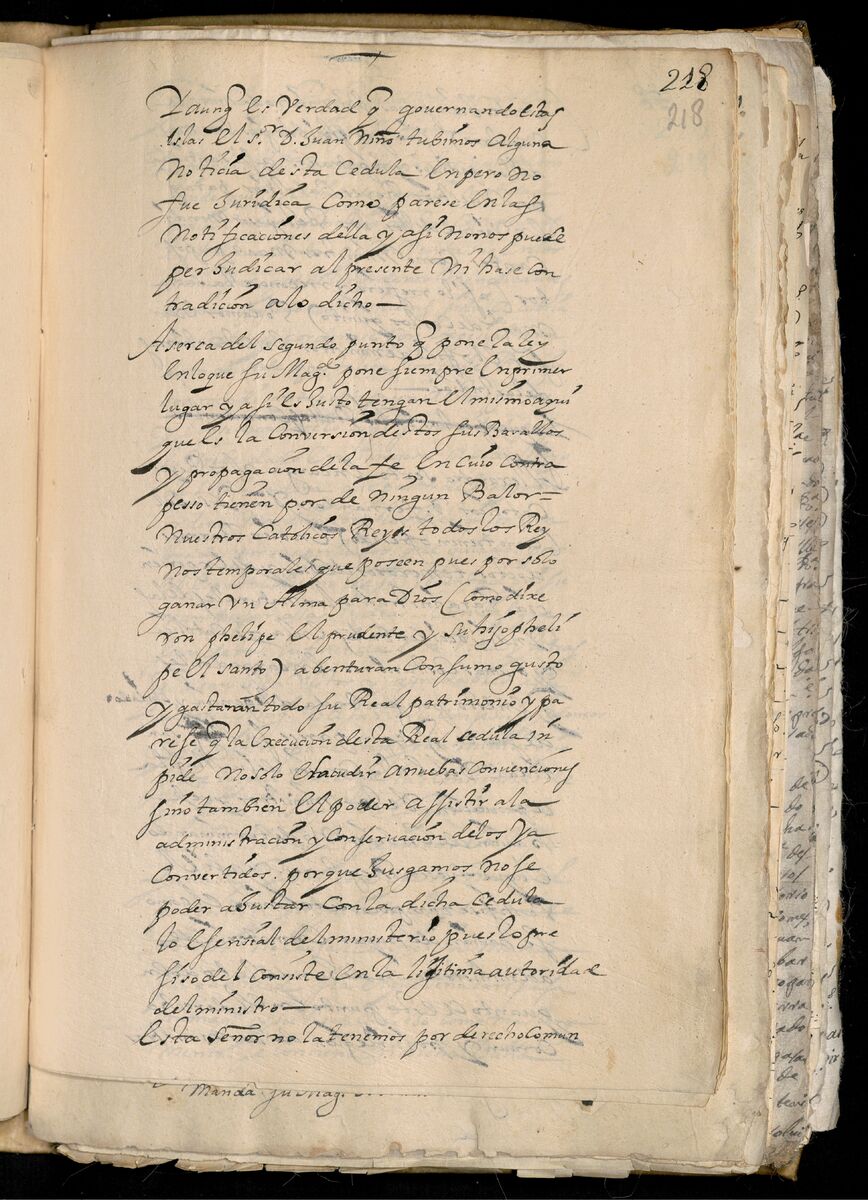 218
218
Y aunq es verdad q governando estas
islas el s.r D. Juan Niño tubimos alguna
noticia desta cedula enpero no
fue Juridica como parese en las
notificaciones della y asi no nos puede
perJudicar al presente ni hase con
tradicion a lo dicho—
Aserca del segundo punto q pone la ley
en lo que su Mag.d pone siempre en primer
lugar y asi es Justo tengan el mismo aqui
que es la conversion destos sus Basallos
y propagacion de la fe en cuio contra
pesso tienen por de ningun Balor=
nuestros catolicos Reyes todos los Rey
nos temporales que poseen pues por solo
ganar un Alma para Dios (como dixe
ron phelipe el prudente y su hijo pheli
pe el santo) abenturan con sumo gusto
y gastaran todo su Real patrimonio y pa
rese q la execucion desta Real cedula in
pide no solo el acudir a nuebas convenciones
sino tambien el poder assistir a la
administracion y conservacion de los ya
convertidos. porque Jusgamos no se
poder aJustar con la dicha cedula
lo esensial del ministerio pues lo pre
siso del consiste en la lijitima autoridad
del ministro—
Esta señor no la tenemos por derecho comun
Manda su Mag.